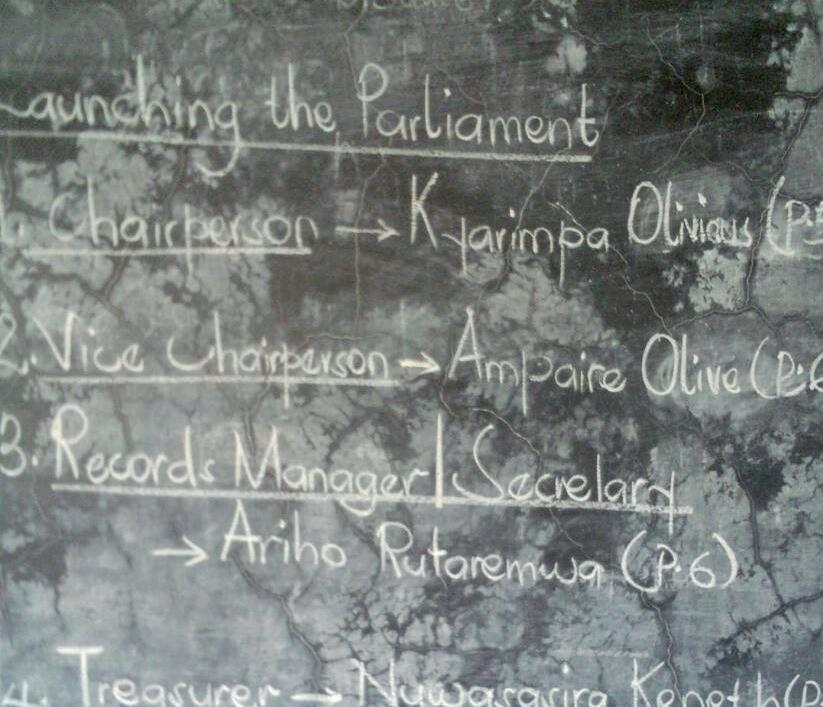 Launching the Parliament
1. Chairperson → Kyarimpa Olivious (P.5
2. Vice Chairperson → Ampaire Olive (P.6
3. Records Manager/Secretary
→ Ariho Rutaremwa (P.6)
4. Treasurer → Nuwagasira Keneth (P.